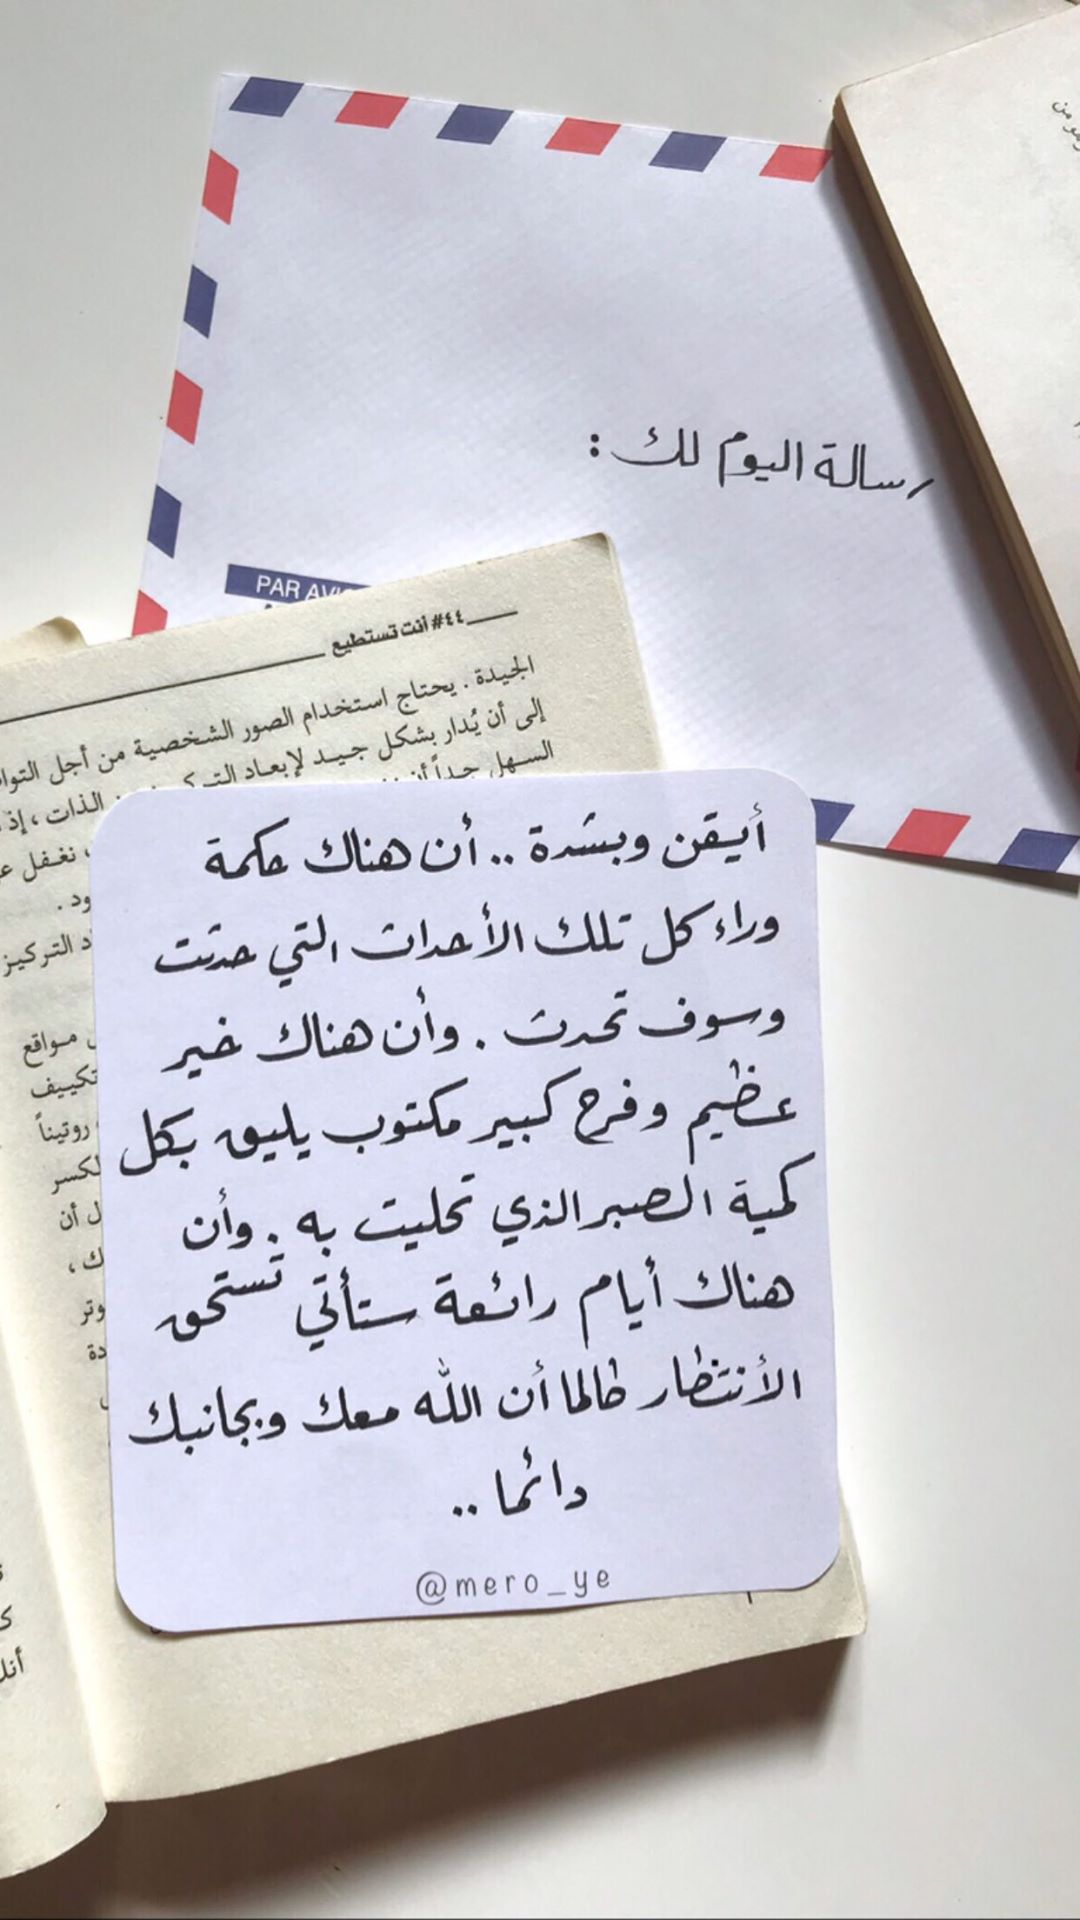 رسالة اليوم لك :
PAR AVI
#٤٤ أنت تستطيع
الجيدة . يحتاج استخدام الصور الشخصية من أجل
إلى أن يُدار بشكل جيد لإبعاد
الذات ، إذ
السهل جداً أن
نغفل
ود .
التركيز
مواقع
تكييف
روتيناً
أن
أيقن وبشدة .. أن هناك حكمة
وراء كل تلك الأحداث التي حدثت
وسوف تحدث . وأن هناك خير
عظيم وفرح كبير مكتوب يليق بكل
كمية الصبر الذي تحليت به . وأن
هناك أيام رائعة ستأتي تستحق
الأنتظار طالما أن الله معك وبجانبك
دائما ..
@mero_ye